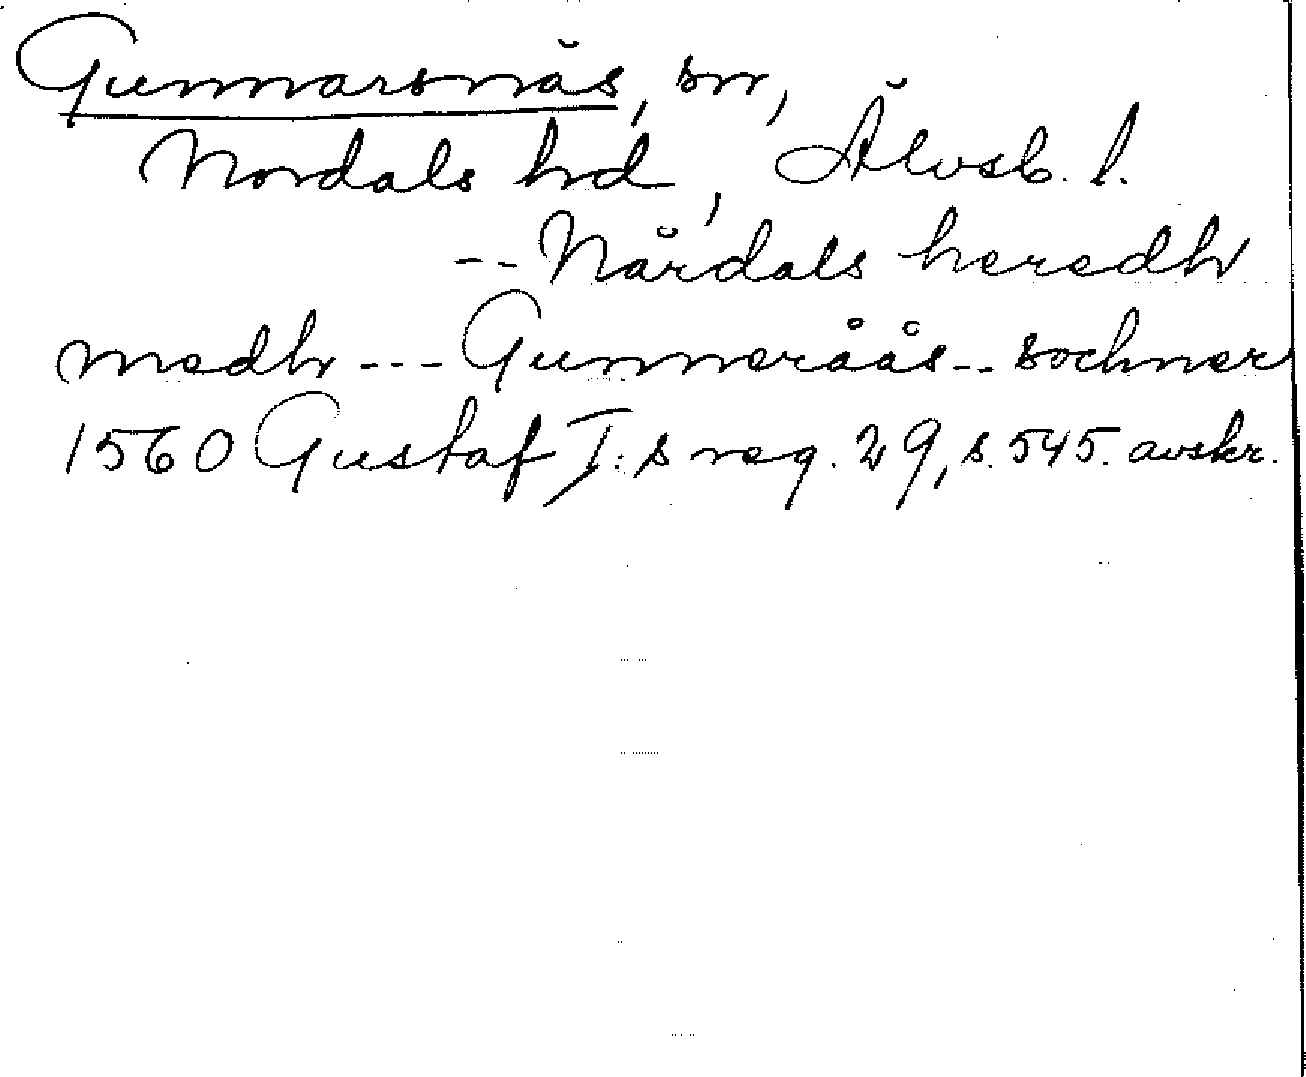 Gunnarsnäs, sn,
Nordals hd, Älvsb. l.
-- Nårdals heredh
medh --- Gunneråås -- sochner
1560 Gustaf I:s reg. 29, s. 545. avskr.